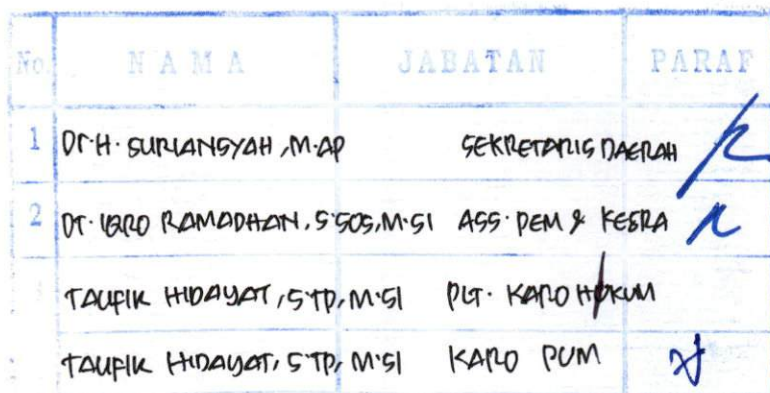 No. NAMA JABATAN PARAF
1 Dr. H. SURIANSYAH, M.AP SEKRETARIS DAERAH
2 DT. IQRO RAMADHAN, S.SOS, M.SI ASS. PEM & KESRA
TAUFIK HIDAYAT, S.TP, M.SI PLT. KARO HUKUM
TAUFIK HIDAYAT, S.TP, M.SI KARO PUM